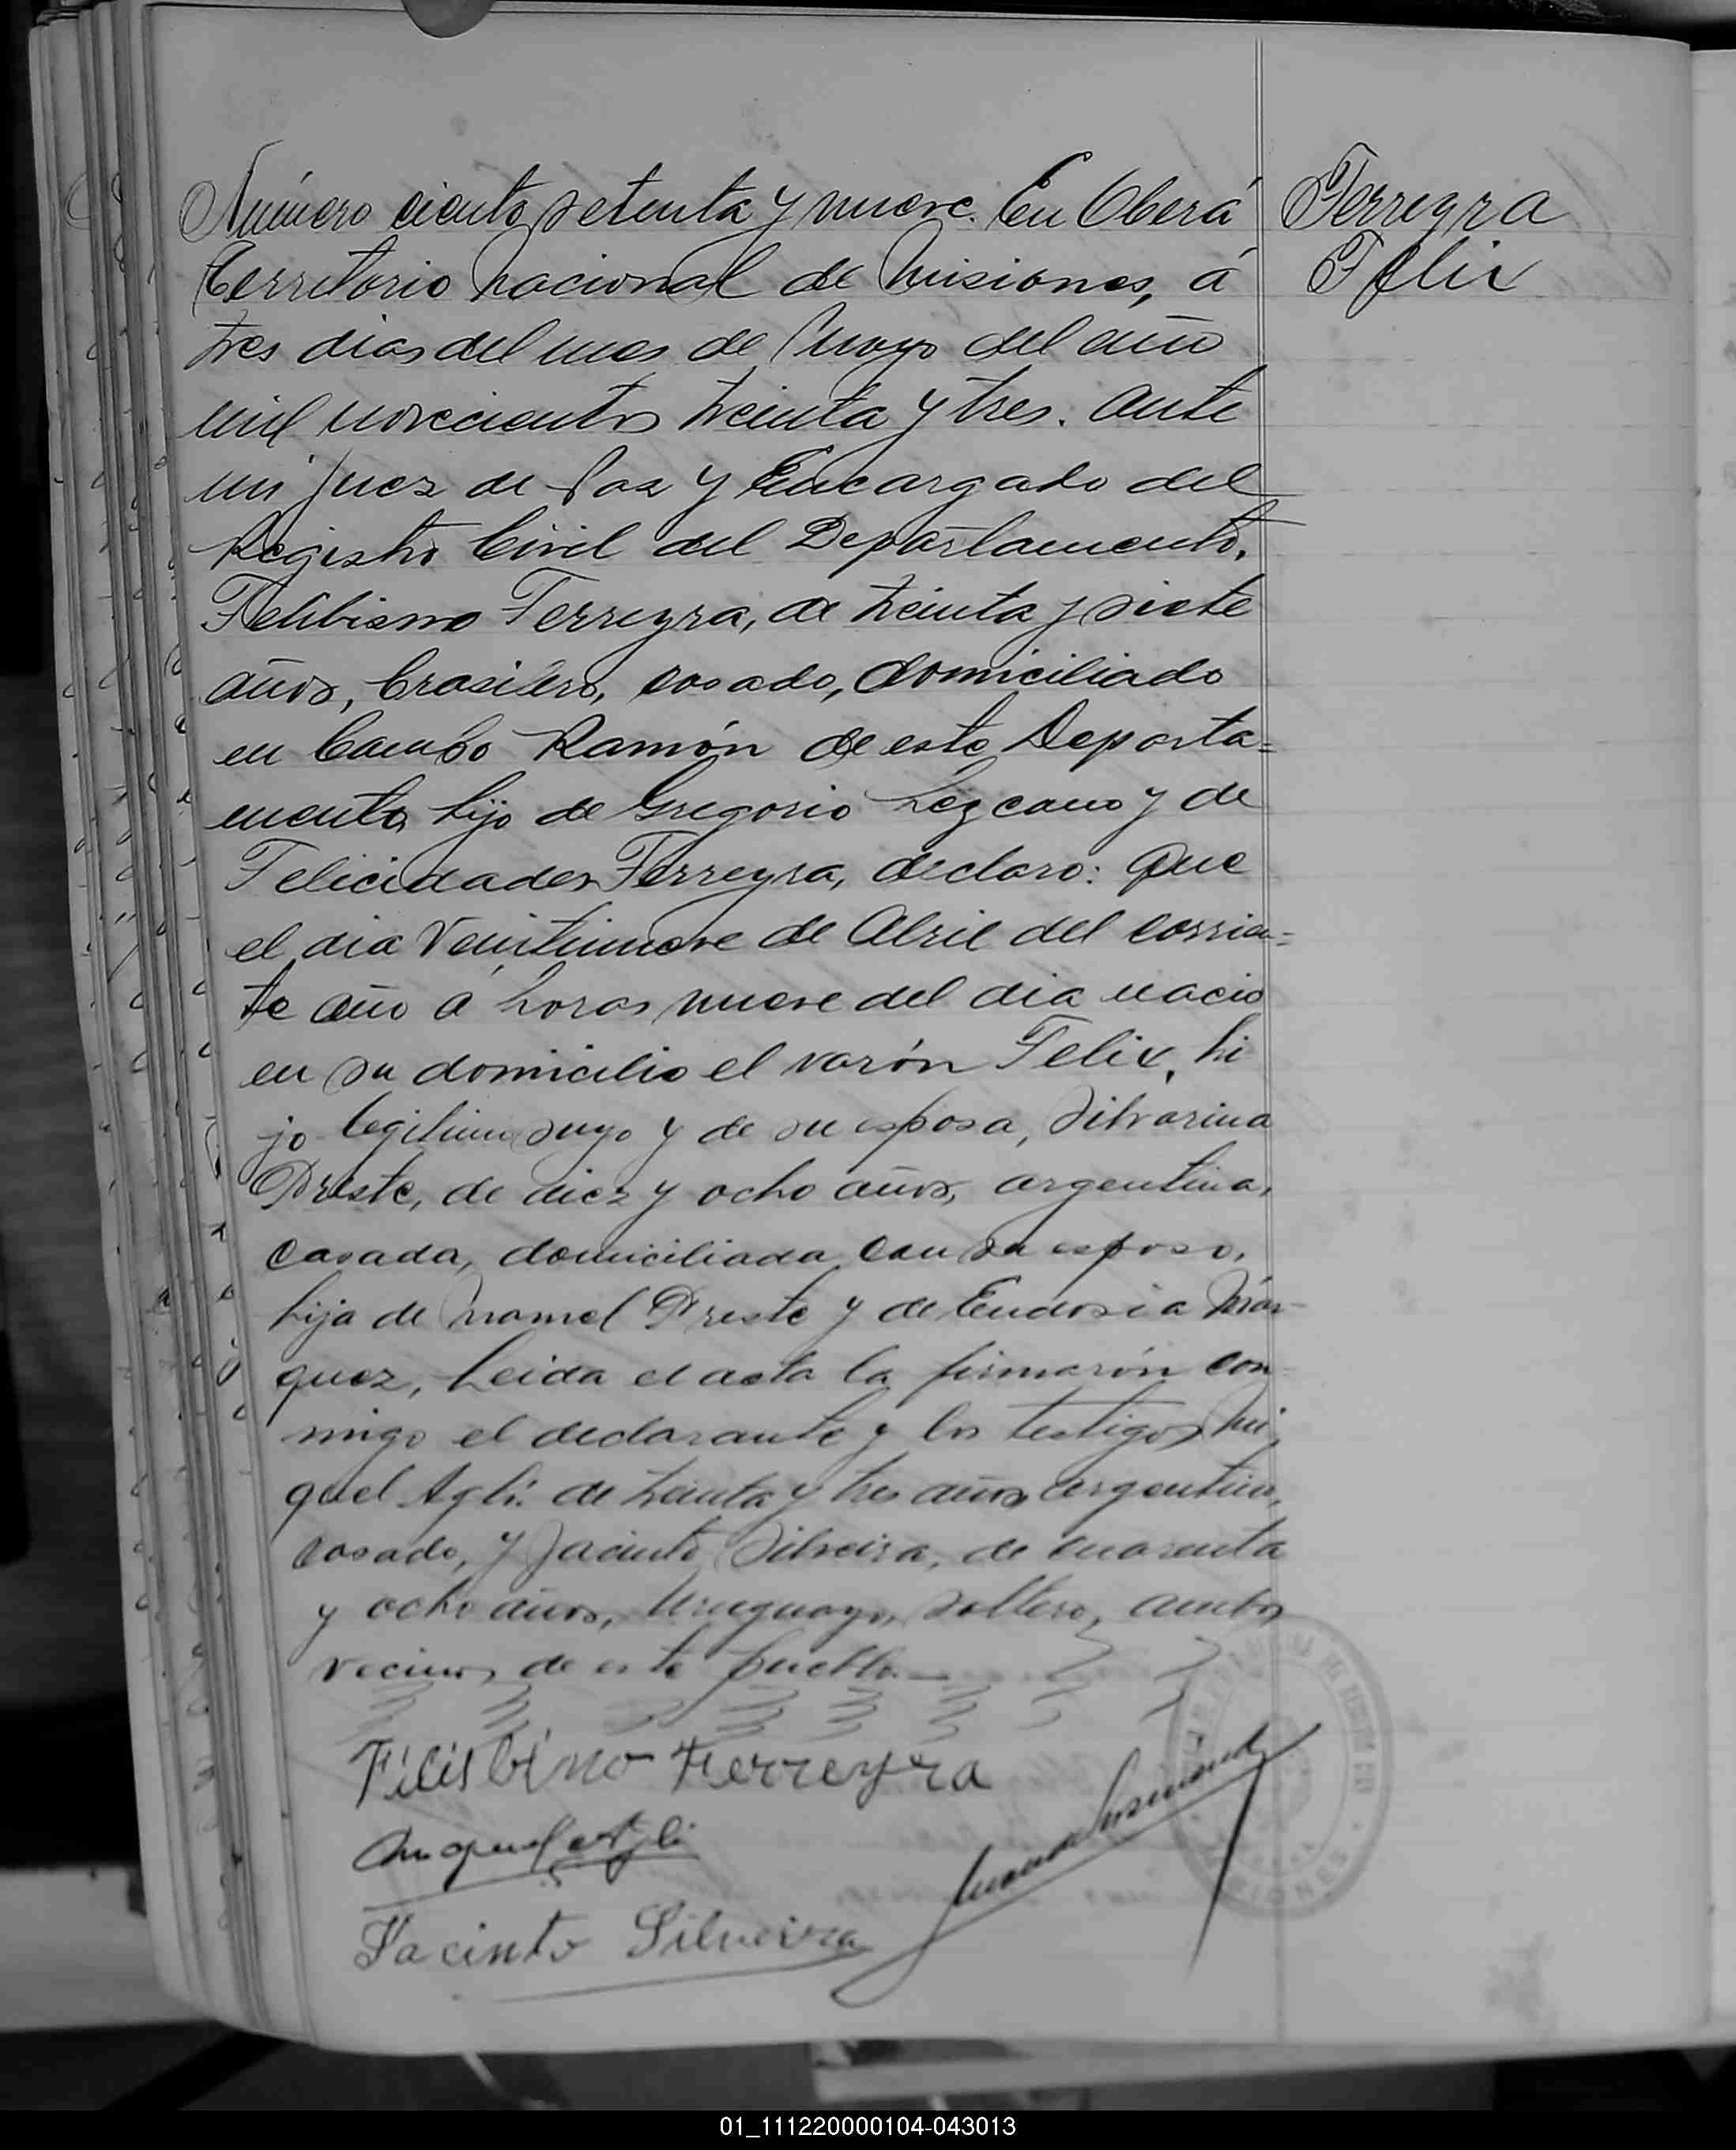 Número ciento setenta y nueve. En Oberá
Territorio nacional de Misiones, á
tres dias del mes de Mayo del año
mil novecientos treinta y tres. Ante
mi Juez de Paz y Encargado del
Registro Civil del Departamento,
Ferreyra, de treinta y siete
años, brasilero, casado, domiciliado
en Campo Ramón de este Departa=
mento, hijo de Gregorio Lezcano y de
Felicidades Ferreyra, declaro: Que
el dia Veintinueve de Abril del corrien=
te año á horas nueve del dia nacio
en su domicilio el varón Felix, hi
jo legitimo suyo y de su esposa, Silvarina
Preste, de diez y ocho años, argentina,
casada, domiciliada con su esposo,
hija de Manuel Preste y de Eudosia Már-
quez, Leida el acta la firmarón con-
migo el declarante y los testigos Mi
guel Agli de treinta y tres años, argentino,
casado, y Jacinto Silveira, de cuarenta
y ocho años, Uruguayo, soltero, ambos
vecinos de este pueblo.—
Filisbino Ferreyra
Miguel Agli
Jacinto Silveira
Ferreyra
Felix
01_111220000104-043013